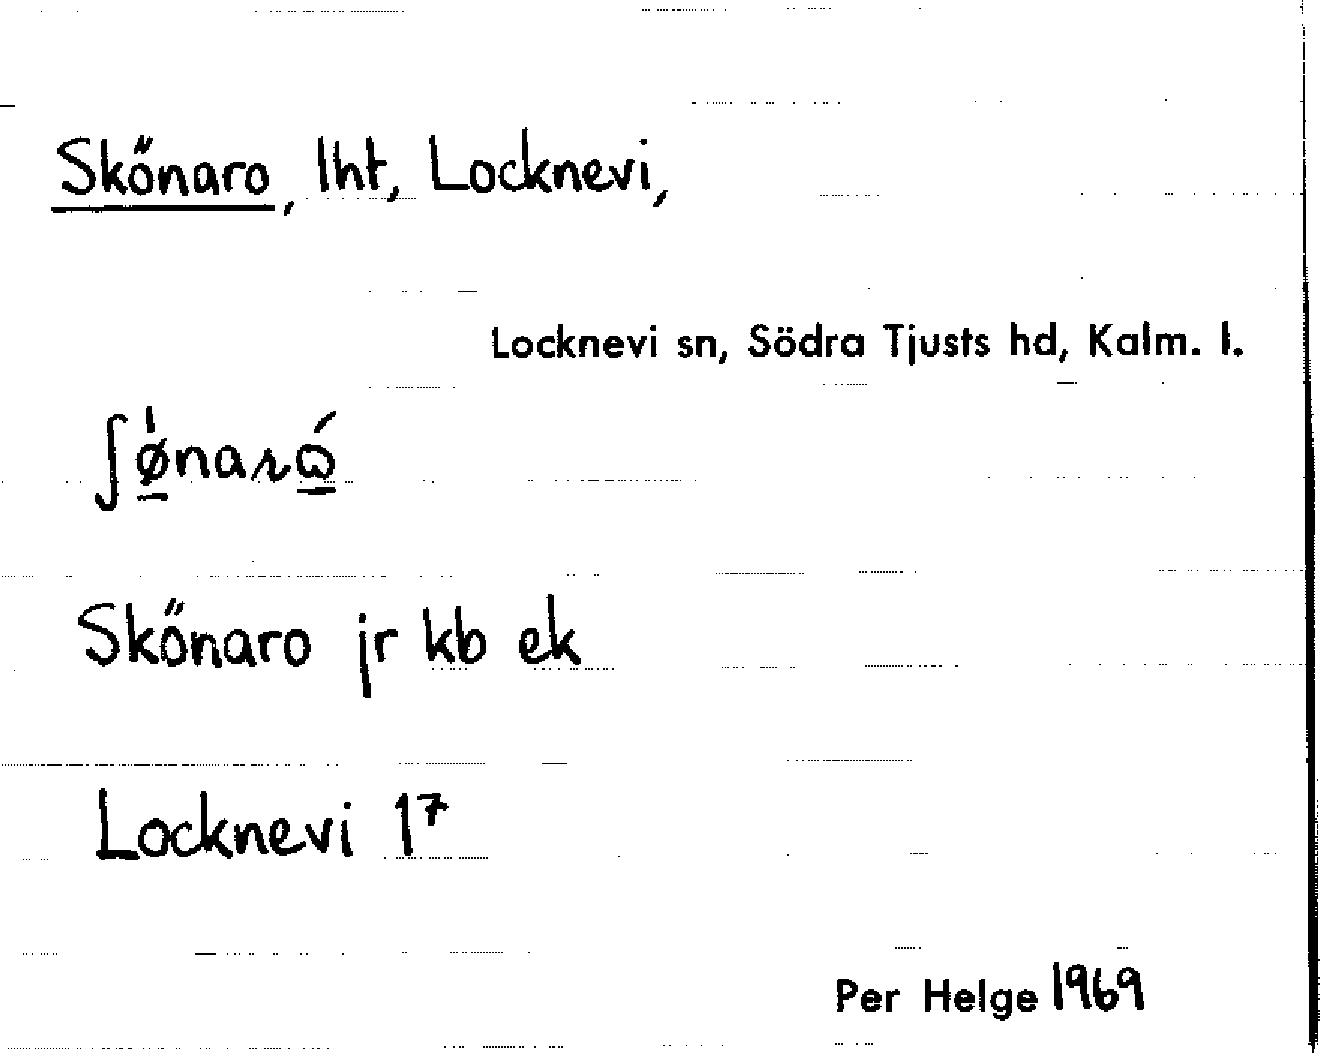 Skőnaro, lht, Locknevi,
Locknevi sn, Södra Tjusts hd, Kalm. l.
Skőnaro jr kb ek
Locknevi 1⁷
Per Helge 1969